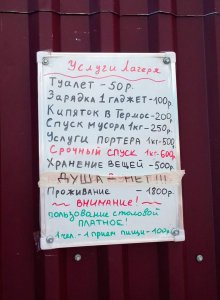 Услуги Лагеря
Туалет - 50р.
Зарядка 1 гаджет-100р.
Кипяток в Термос-200р
Спуск мусора 1кг-250р.
Услуги портера 1кг-500
Срочный спуск 1кг-600р
Хранение вещей - 500р.
Душа = НЕТ!!!
Проживание - 1800р.
~ ВНИМАНИЕ! ~
пользование столовой
ПЛАТНОЕ!
1 чел. - 1 прием. пищи - 100р.